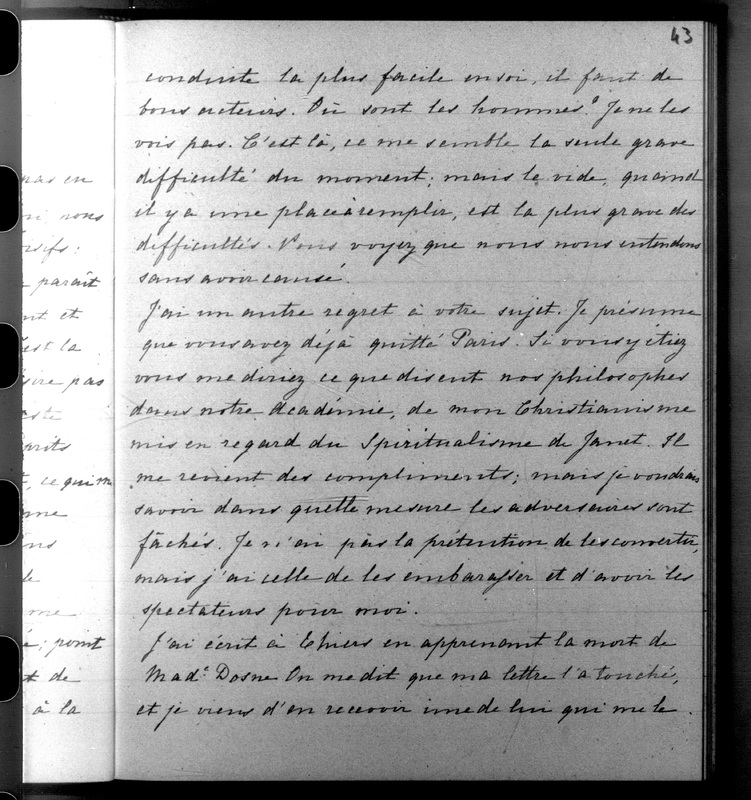 43
conduite la plus facile en soi, il faut de
bons acteurs. Où sont les hommes? Je ne les
vois pas. C'est là, ce me semble la seule grave
difficulté du moment; mais le vide, quand
il y a une place à remplir, est la plus grave des
difficultés. Vous voyez que nous nous entendons
sans avoir causé.
J'ai un autre regret à votre sujet. Je présume
que vous avez déjà quitté Paris. Si vous y étiez
vous me diriez ce que disent nos philosophes
dans notre Académie, de mon Christianisme
mis en regard du Spiritualisme de Janet. Il
me revient des compliments; mais je voudrais
savoir dans quelle mesure les adversaires sont
fâchés. Je n'ai pas la prétention de les convertir,
mais j'ai celle de les embarasser et d'avoir les
spectateurs pour moi.
J'ai écrit à Thiers en apprenant la mort de
Made Dosne On me dit que ma lettre l'a touché,
et je viens d'en recevoir une de lui qui me le
pas en
nous
parait
et
est la
pas
ce qui m
point
de
à la